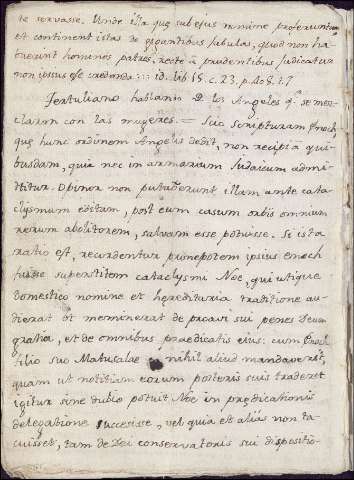 te servasse. Unde illa quę sub ejus nomine proferuntur
et continent istas de gigantibus fabulas, quod non ha-
buerint homines patres, recte à prudentibus judicatur
non ipsius eße credenda :: id. lib 15. c. 23. p. 408. t. 7
Tertuliano hablando D. los Angeles q.e se mez-
claron con las mugeres. = Scio scripturam Enoch
quę hunc ordinem Angelis dedit, non recipi à qui-
busdam, quia nec in armarium Judaicum admi-
ttitur. Opinor non putaverunt illam ante cata-
clysmum editam, post eum casum orbis omnium
rerum abolitorem, salvam esse potuisse. Si ista
ratio est, recordentur pronepotem ipsius Enoch
fuisse superstitem cataclysmi Noe, qui utique
domestico nomine et hereditaria traditione au-
dierat et meminerat de proavi sui penes Deum
gratia, et de omnibus praedicatis ejus: cum Enoch
filio suo Matusalae nihil aliud mandaverit,
quam ut notitiam eorum posteris suis traderet
igitur sine dubio potuit Noe in prędicationis
delegatione succesisse, vel quia et aliàs non ta-
cuisset, tam de Dei conservatoris sui dispositio-